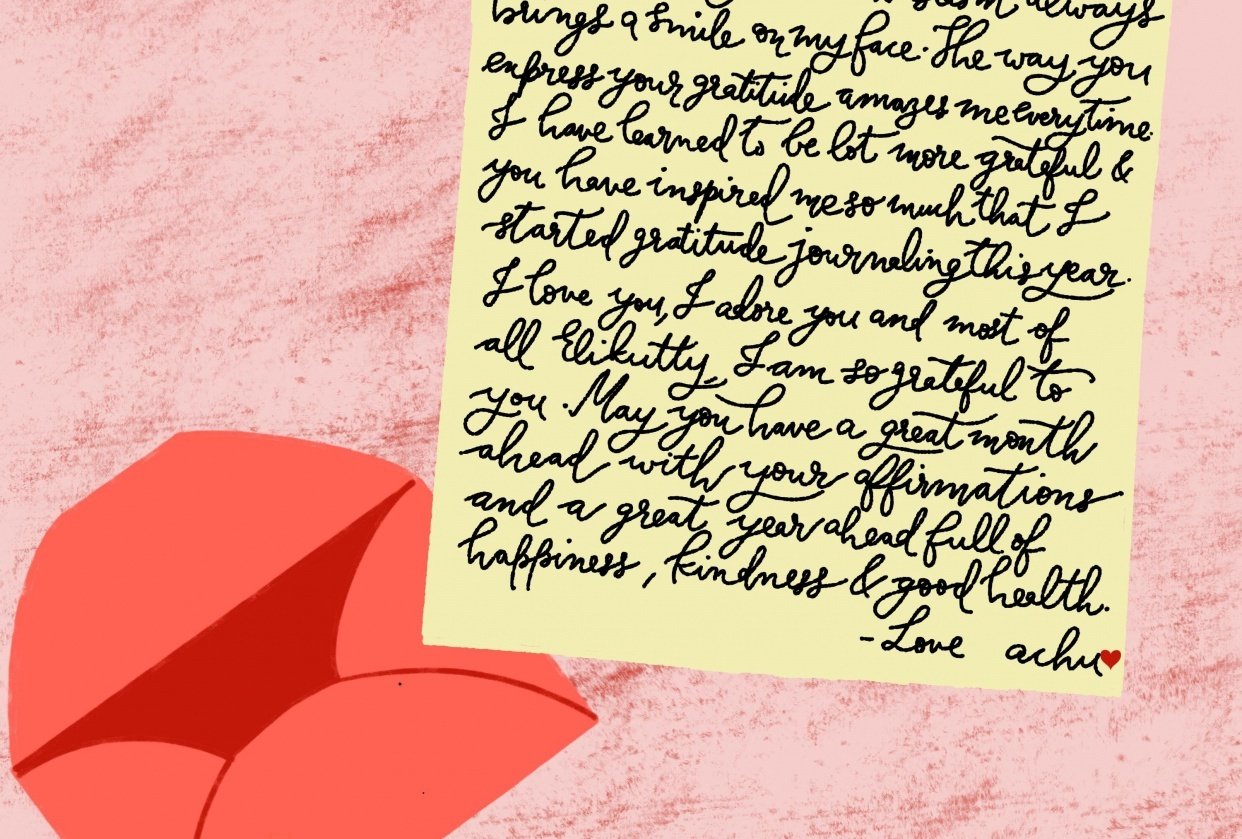 always
brings a smile on my face. The way you
express your gratitude amazes me everytime.
I have learned to be lot more grateful &
you have inspired me so much that I
started gratitude journaling this year.
I love you, I adore you and most of
all Elikutty, I am so grateful to
you. May you have a great month
ahead with your affirmations
and a great year ahead full of
happiness, kindness & good health.
-Love achu